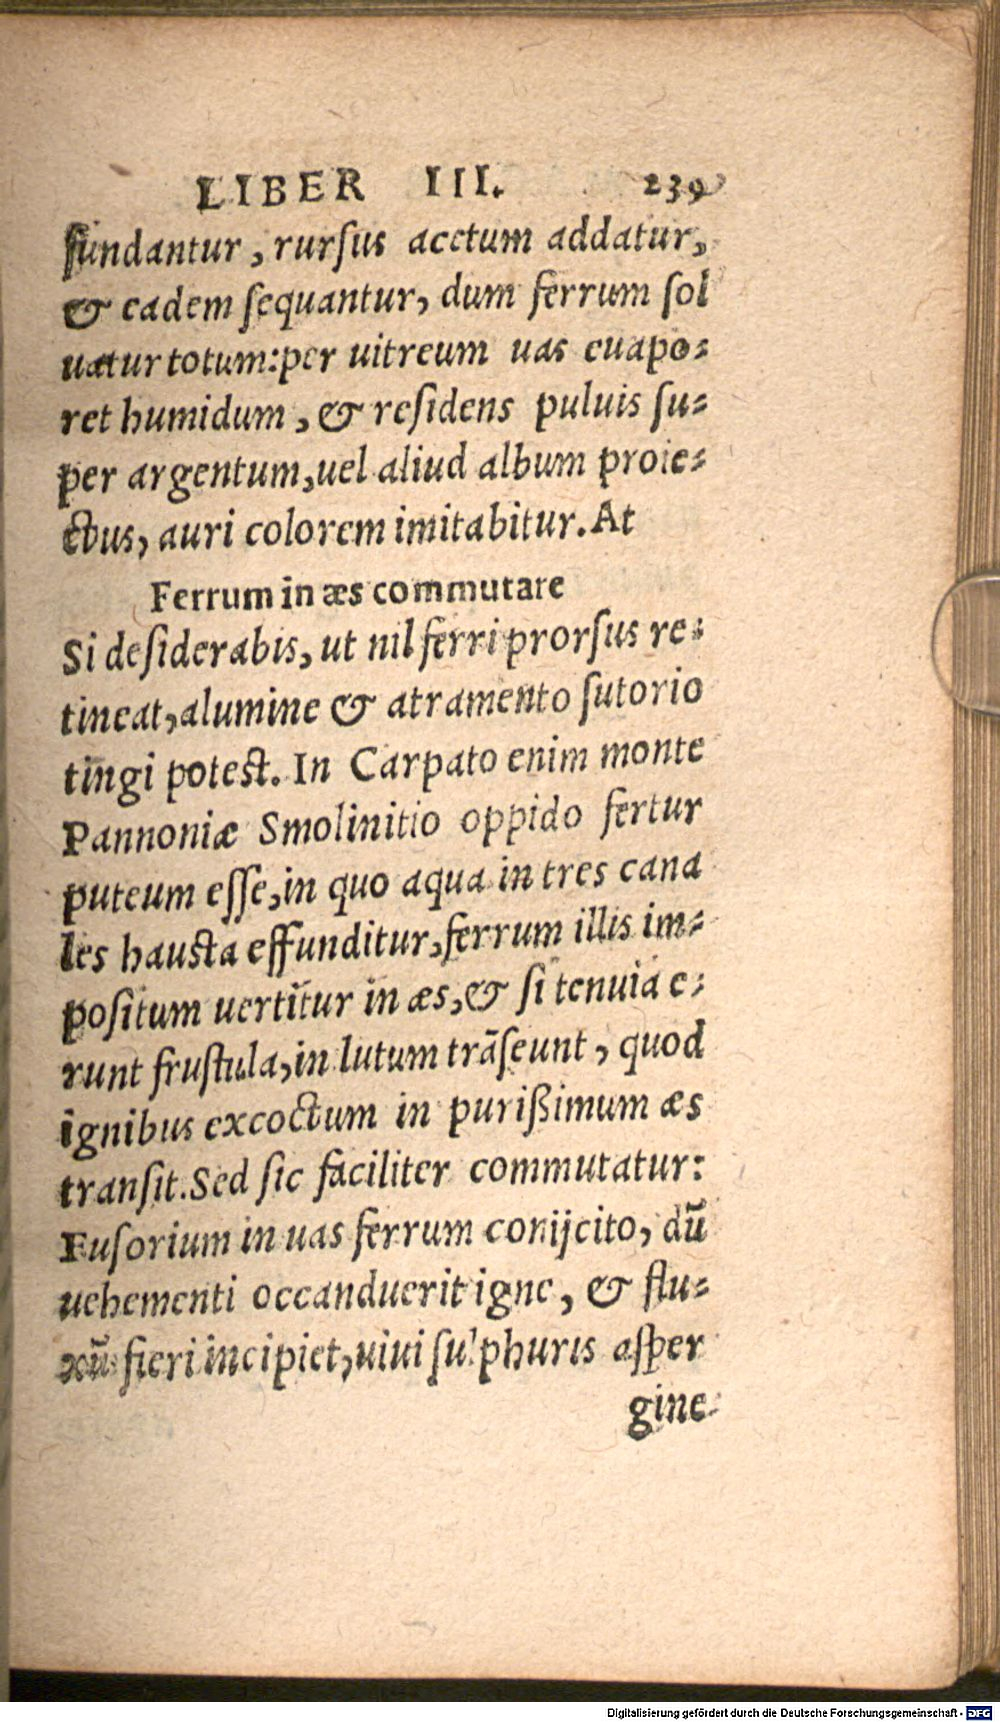 LIBER III. 239
fundantur, rursus acetum addatur,
& eadem sequantur, dum ferrum sol
uatur totum: per uitreum uas euapo-
ret humidum, & residens puluis su-
per argentum, uel aliud album proie-
ctus, auri colorem imitabitur. At
Ferrum in æs commutare
Si desiderabis, ut nil ferri prorsus re-
tineat, alumine & atramento sutorio
tingi potest. In Carpato enim monte
Pannoniæ Smolinitio oppido fertur
puteum esse, in quo aqua in tres cana
les hausta effunditur, ferrum illis im-
positum uertitur in æs, & si tenuia e-
runt frustula, in lutum trāseunt, quod
ignibus excoctum in purißimum æs
transit. Sed sic faciliter commutatur:
Fusorium in uas ferrum conijcito, dū
uehementi occanduerit igne, & flu-
xū fieri incipiet, uiui sulphuris asper
gine
Digitalisierung gefördert durch die Deutsche Forschungsgemeinschaft - DFG